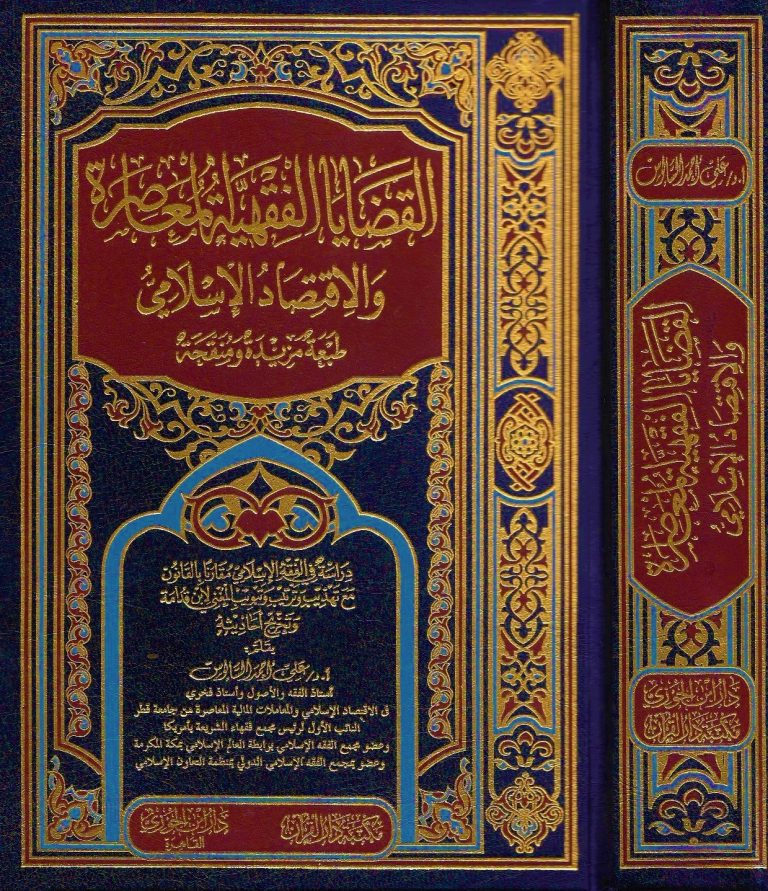 القضايا الفقهية المعاصرة
والاقتصاد الإسلامي
طبعة مزيدة ومنقحة
دراسة في الفقه الإسلامي مقارنا بالقانون
مع تهذيب وترتيب وتبويب المغني لابن قدامة
وتخريج أحاديثه
بقلم
أ.د/ علي أحمد السالوس
أستاذ الفقه والأصول وأستاذ فخري
في الاقتصاد الإسلامي والمعاملات المالية المعاصرة من جامعة قطر
النائب الأول لرئيس مجمع فقهاء الشريعة بأمريكا
وعضو مجمع الفقه الإسلامي برابطة العالم الإسلامي بمكة المكرمة
وعضو بمجمع الفقه الإسلامي الدولي بمنظمة التعاون الإسلامي
مكتبة دار القرآن
دار ابن الجوزي
القاهرة
أ.د/ علي أحمد السالوس
القضايا الفقهية المعاصرة
والاقتصاد الإسلامي
دار ابن الجوزي
مكتبة دار القرآن